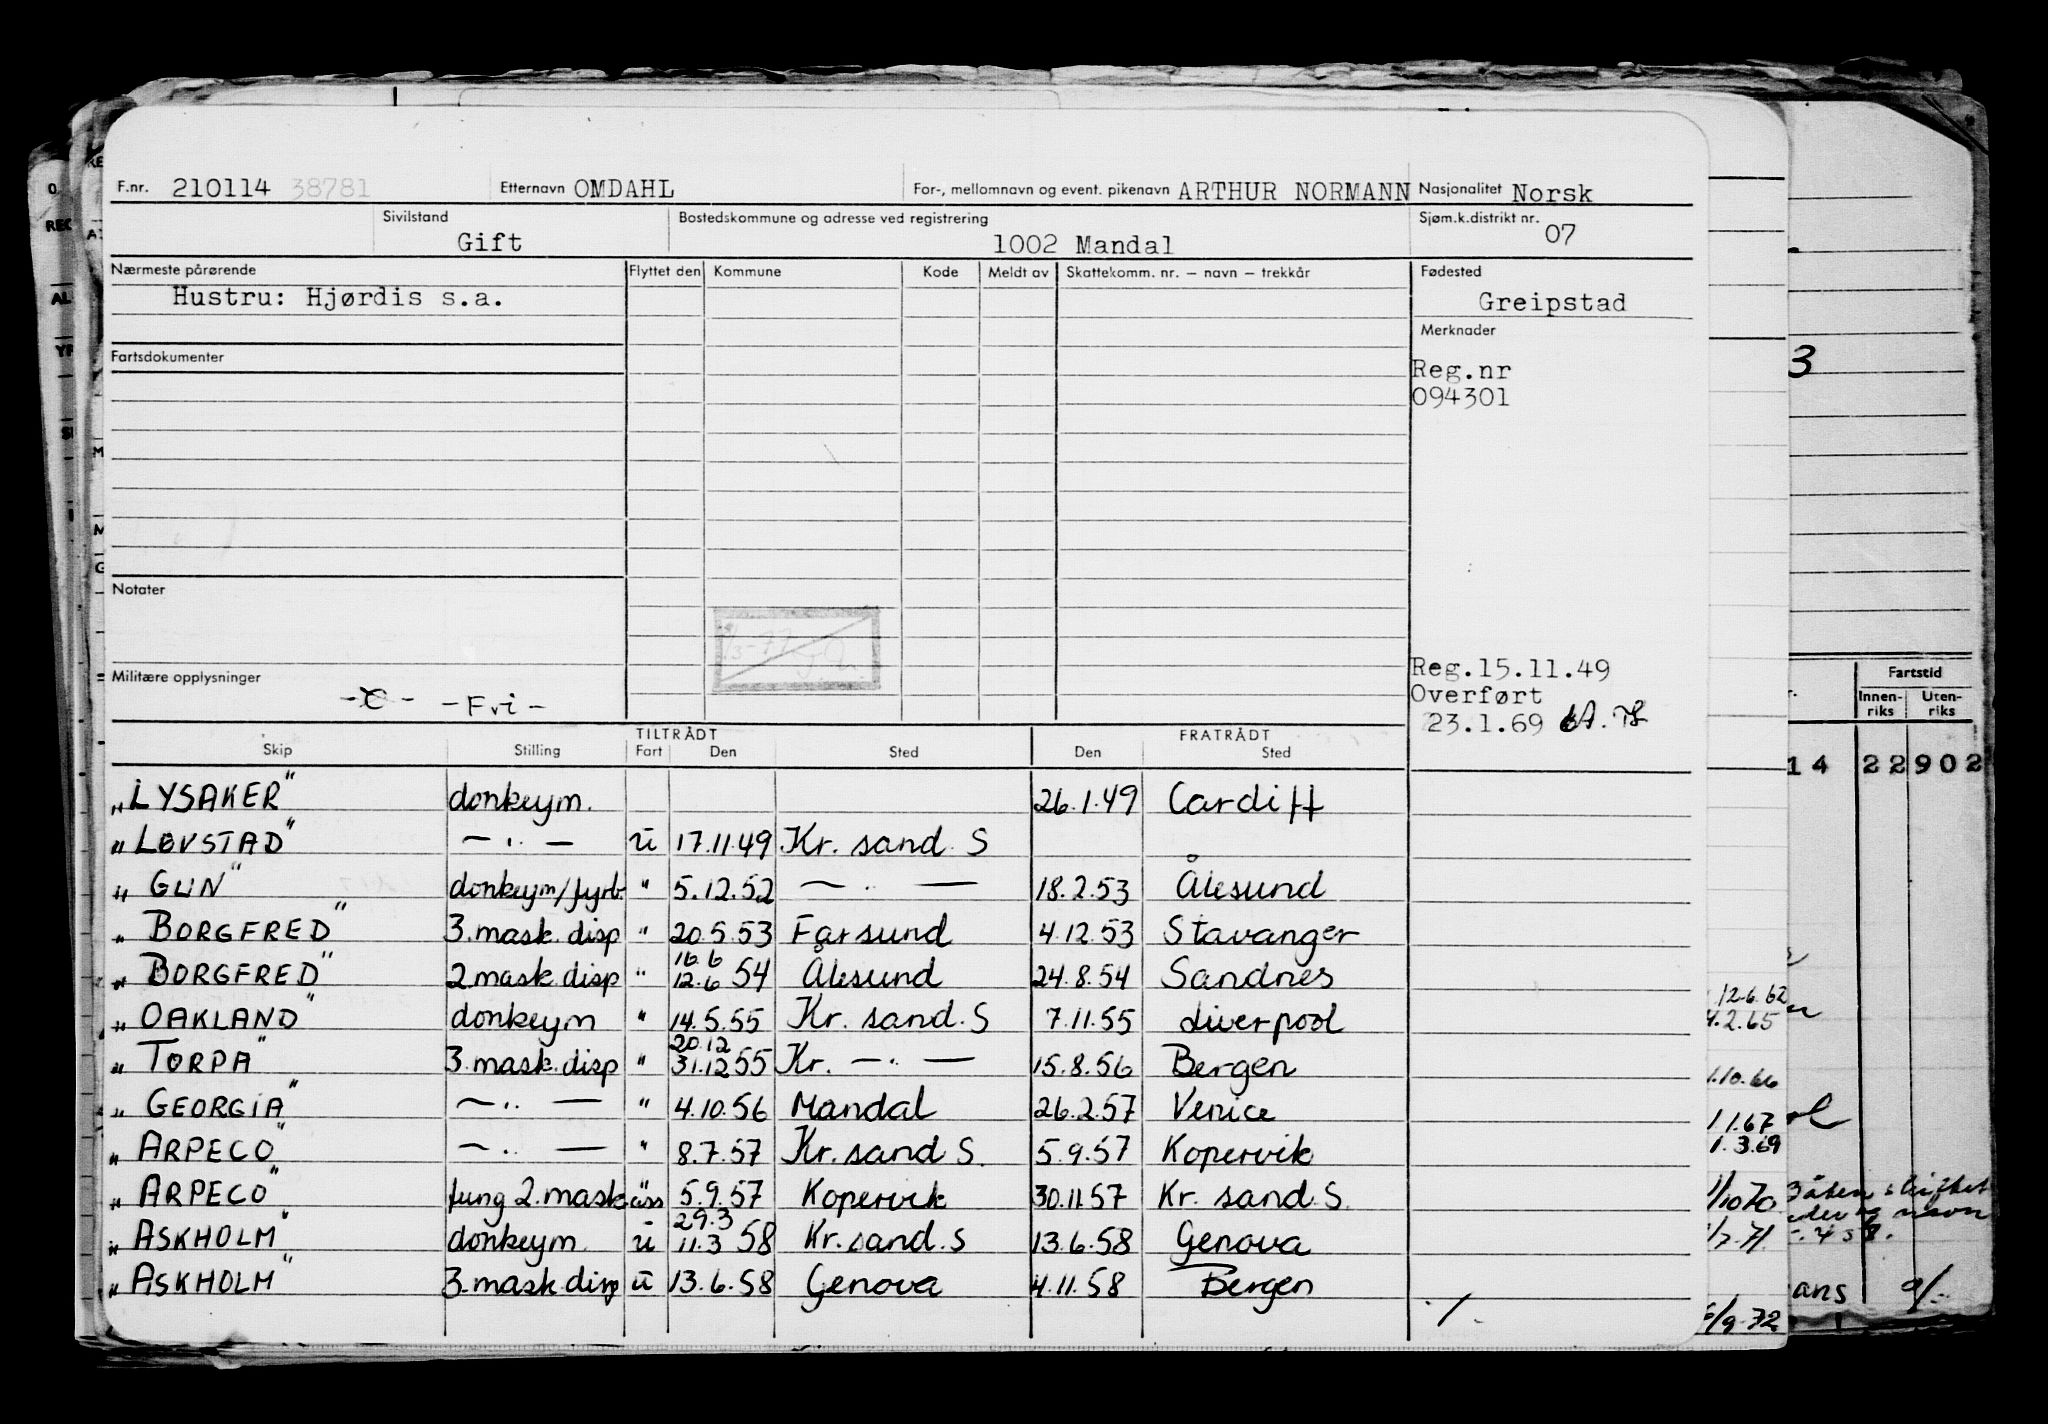 F.nr. 210114 38781 Etternavn OMDAHL For-, mellomnavn og event. pikenavn ARTHUR NORMANN Nasjonalitet Norsk
Sivilstand Gift Bostedskommune og adresse ved registrering 1002 Mandal Sjøm.k.distrikt nr. 07
Nærmeste pårørende Flyttet den Kommune Kode Meldt av Skattekomm. nr. – navn – trekkår Fødested
Hustru: Hjørdis s.a. Greipstad
Merknader
Fartsdokumenter
Reg.nr
094301
Notater
Militære opplysninger
- Fri -
Reg.15.11.49
Overført
23.1.69
TILTRÅDT FRATRÅDT
Skip Stilling Fart Den Sted Den Sted
„LYSAKER" donkeym. 26.1.49 Cardiff
„LØVSTAD" — ·· — ū 17.11.49 Kr. sand. S
„GUN" donkeym/fyrb. " 5.12.52 — · — 18.2.53 Ålesund
„BORGFRED" 3.mask.disp " 20.5.53 Farsund 4.12.53 Stavanger
„BORGFRED" 2.mask.disp " 16.6 12.6 54 Ålesund 24.8.54 Sandnes
„OAKLAND" donkeym " 14.5.55 Kr. sand. S 7.11.55 Liverpool
„TORPA" 3.mask.disp " 20.12 31.12 55 Kr. — · — 15.8.56 Bergen
„GEORGIA" — ·· — " 4.10.56 Mandal 26.2.57 Venice
„ARPECO" — ·· — " 8.7.57 Kr. sand S. 5.9.57 Kopervik
„ARPECO" fung 2.mask.ass " 5.9.57 Kopervik 30.11.57 Kr. sand. S.
„ASKHOLM" donkeym. ū 29.3 11.3 58 Kr. sand. S 13.6.58 Genova
„ASKHOLM" 3.mask.disp ū 13.6.58 Genova 4.11.58 Bergen
3
Fartstid
Innen-riks Uten-riks
14 22902
12.6.62
4.2.65
.10.66
1.67
1.3.69
/10 70
/7.71
ans
/9.72